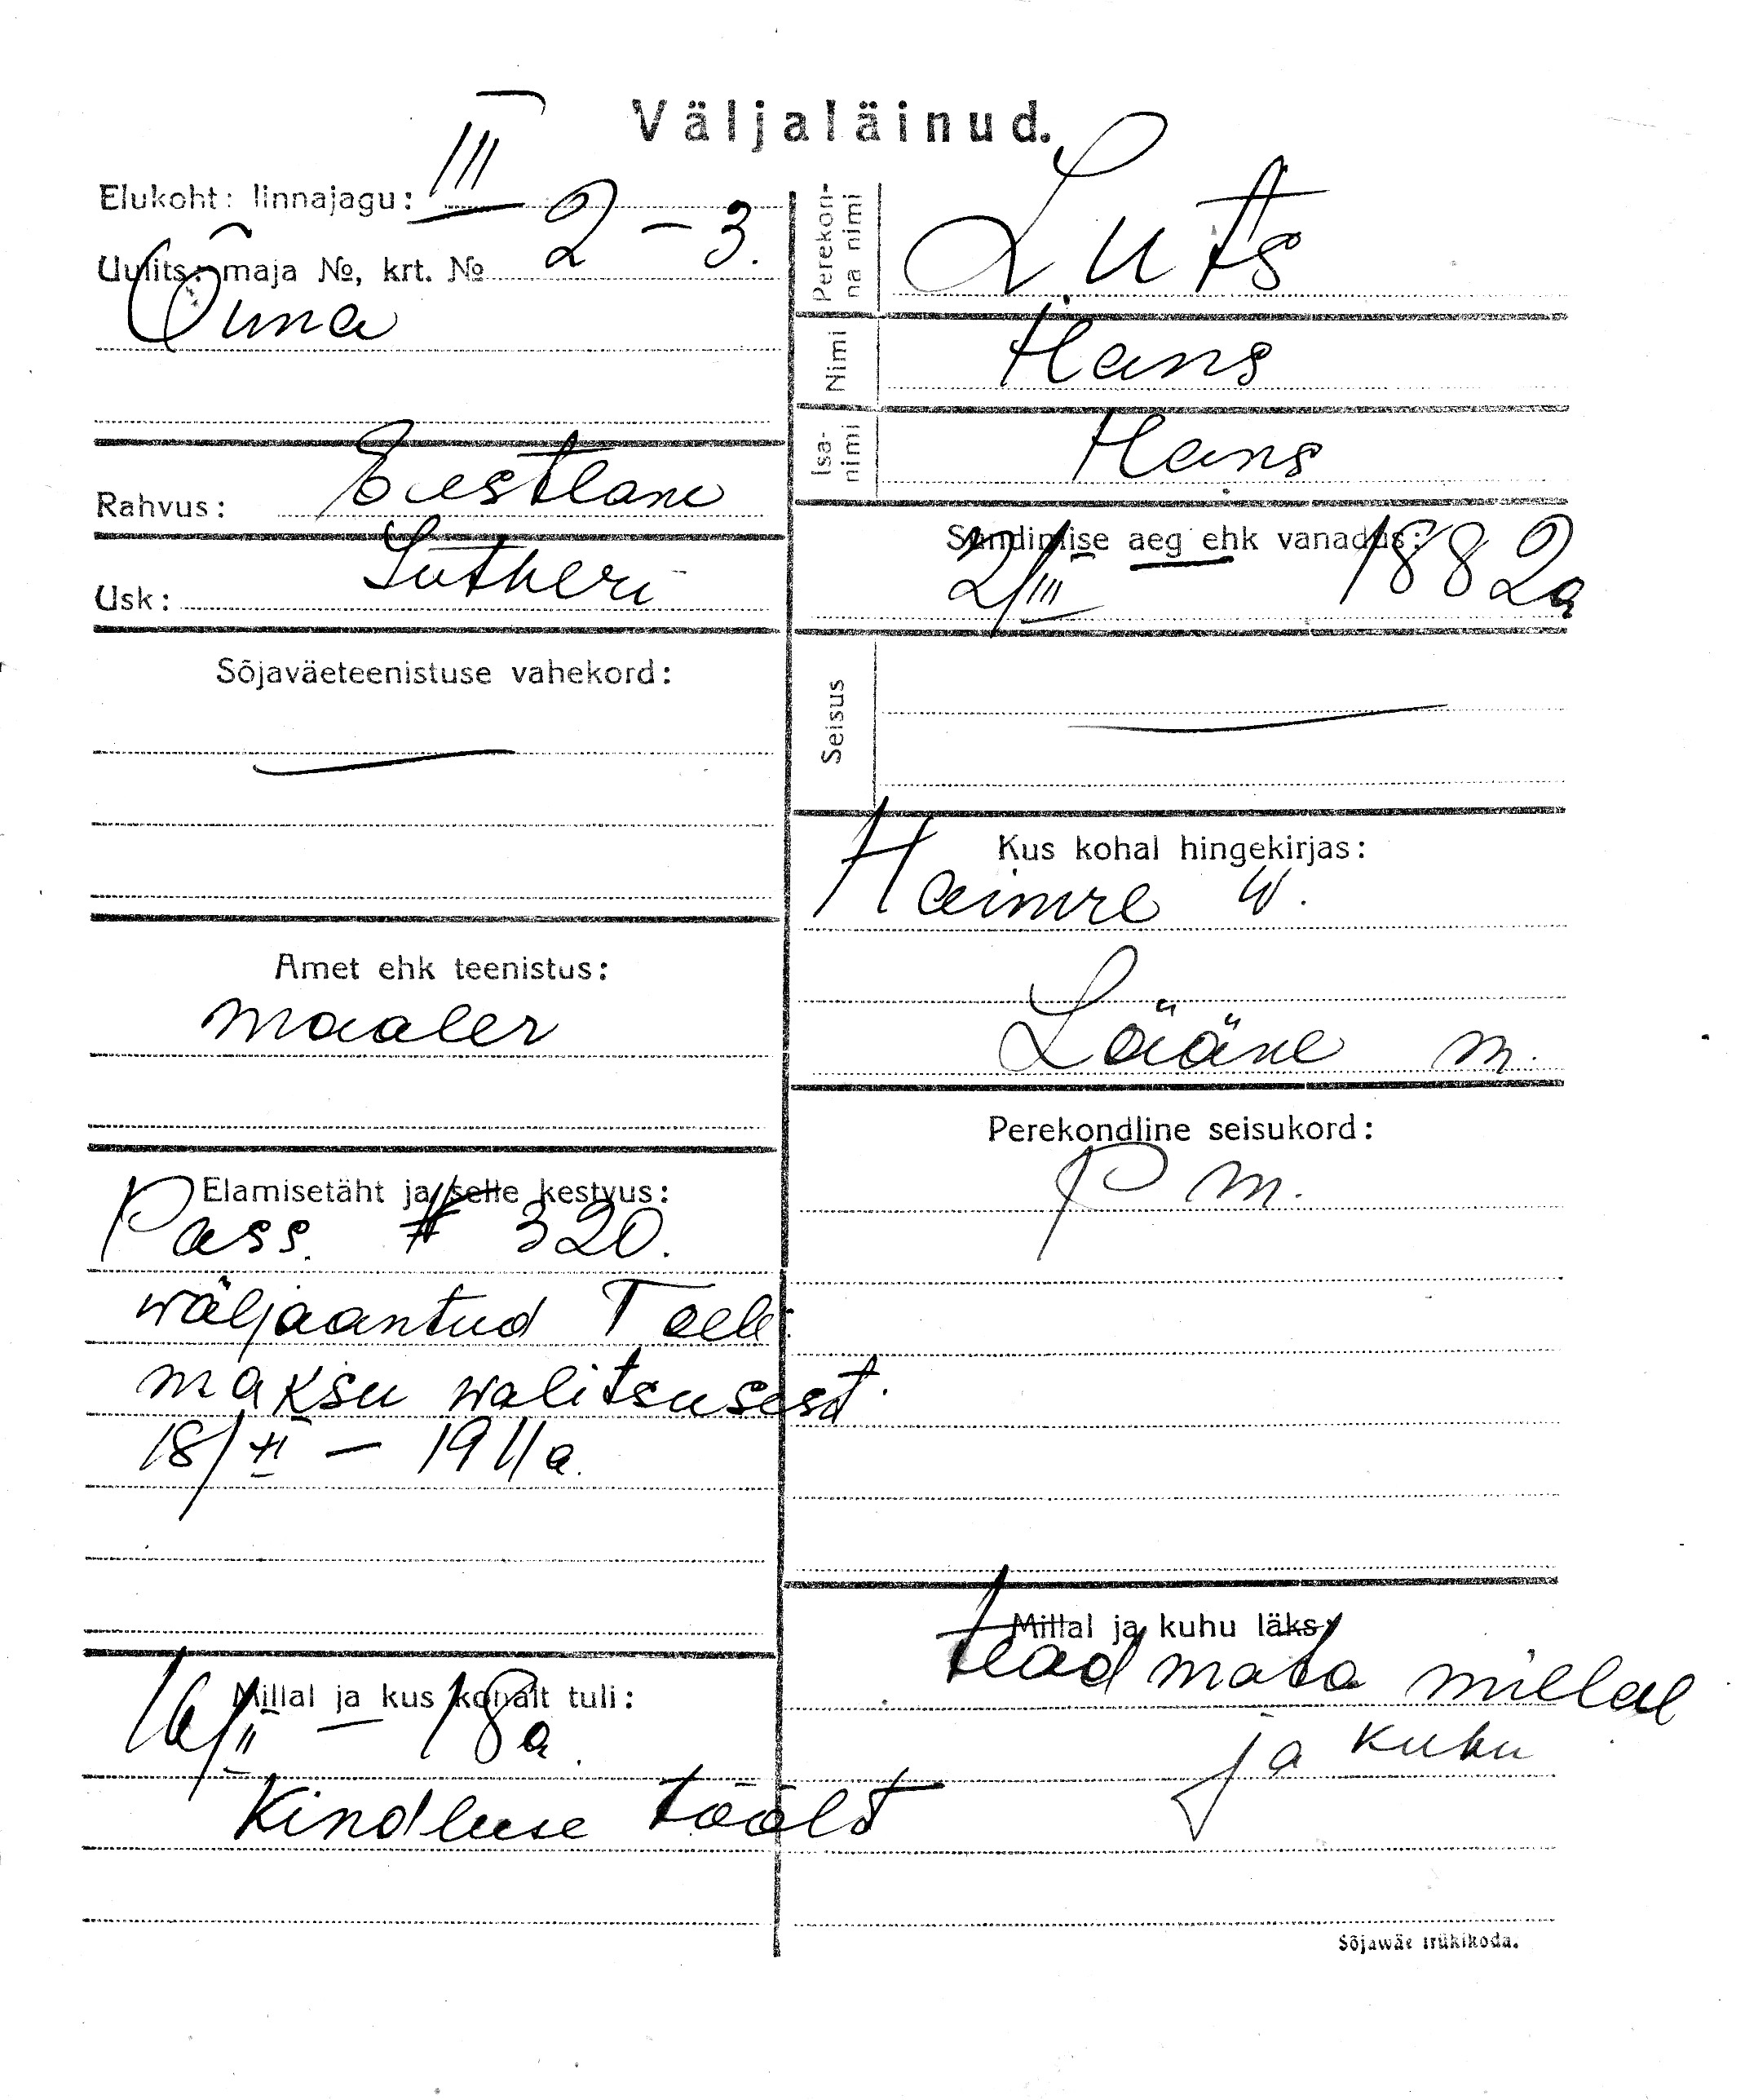 Väljaläinud.
Elukoht: linnajagu: III
Uulits: maja №, krt. № 2 – 3.
Õuna
Rahvus: Eestlane
Usk: Lutheri
Sõjaväeteenistuse vahekord:
—
Amet ehk teenistus:
maaler
Elamisetäht ja selle kestvus:
Pass. # 320.
wäljaantud Tall.
maksu walitsusest.
18/XI – 1911 a.
Millal ja kus kohalt tuli:
16/II – 18 a.
Kindluse töölt
Perekonna nimi
Luts
Nimi
Hans
Isanimi
Hans
Sündimise aeg ehk vanadus:
2/III 1882 a
Seisus
—
Kus kohal hingekirjas:
Haimre w.
Lääne m.
Perekondline seisukord:
P m.
Millal ja kuhu läks:
tead mata millal
ja kuhu
Sõjawäe trükikoda.